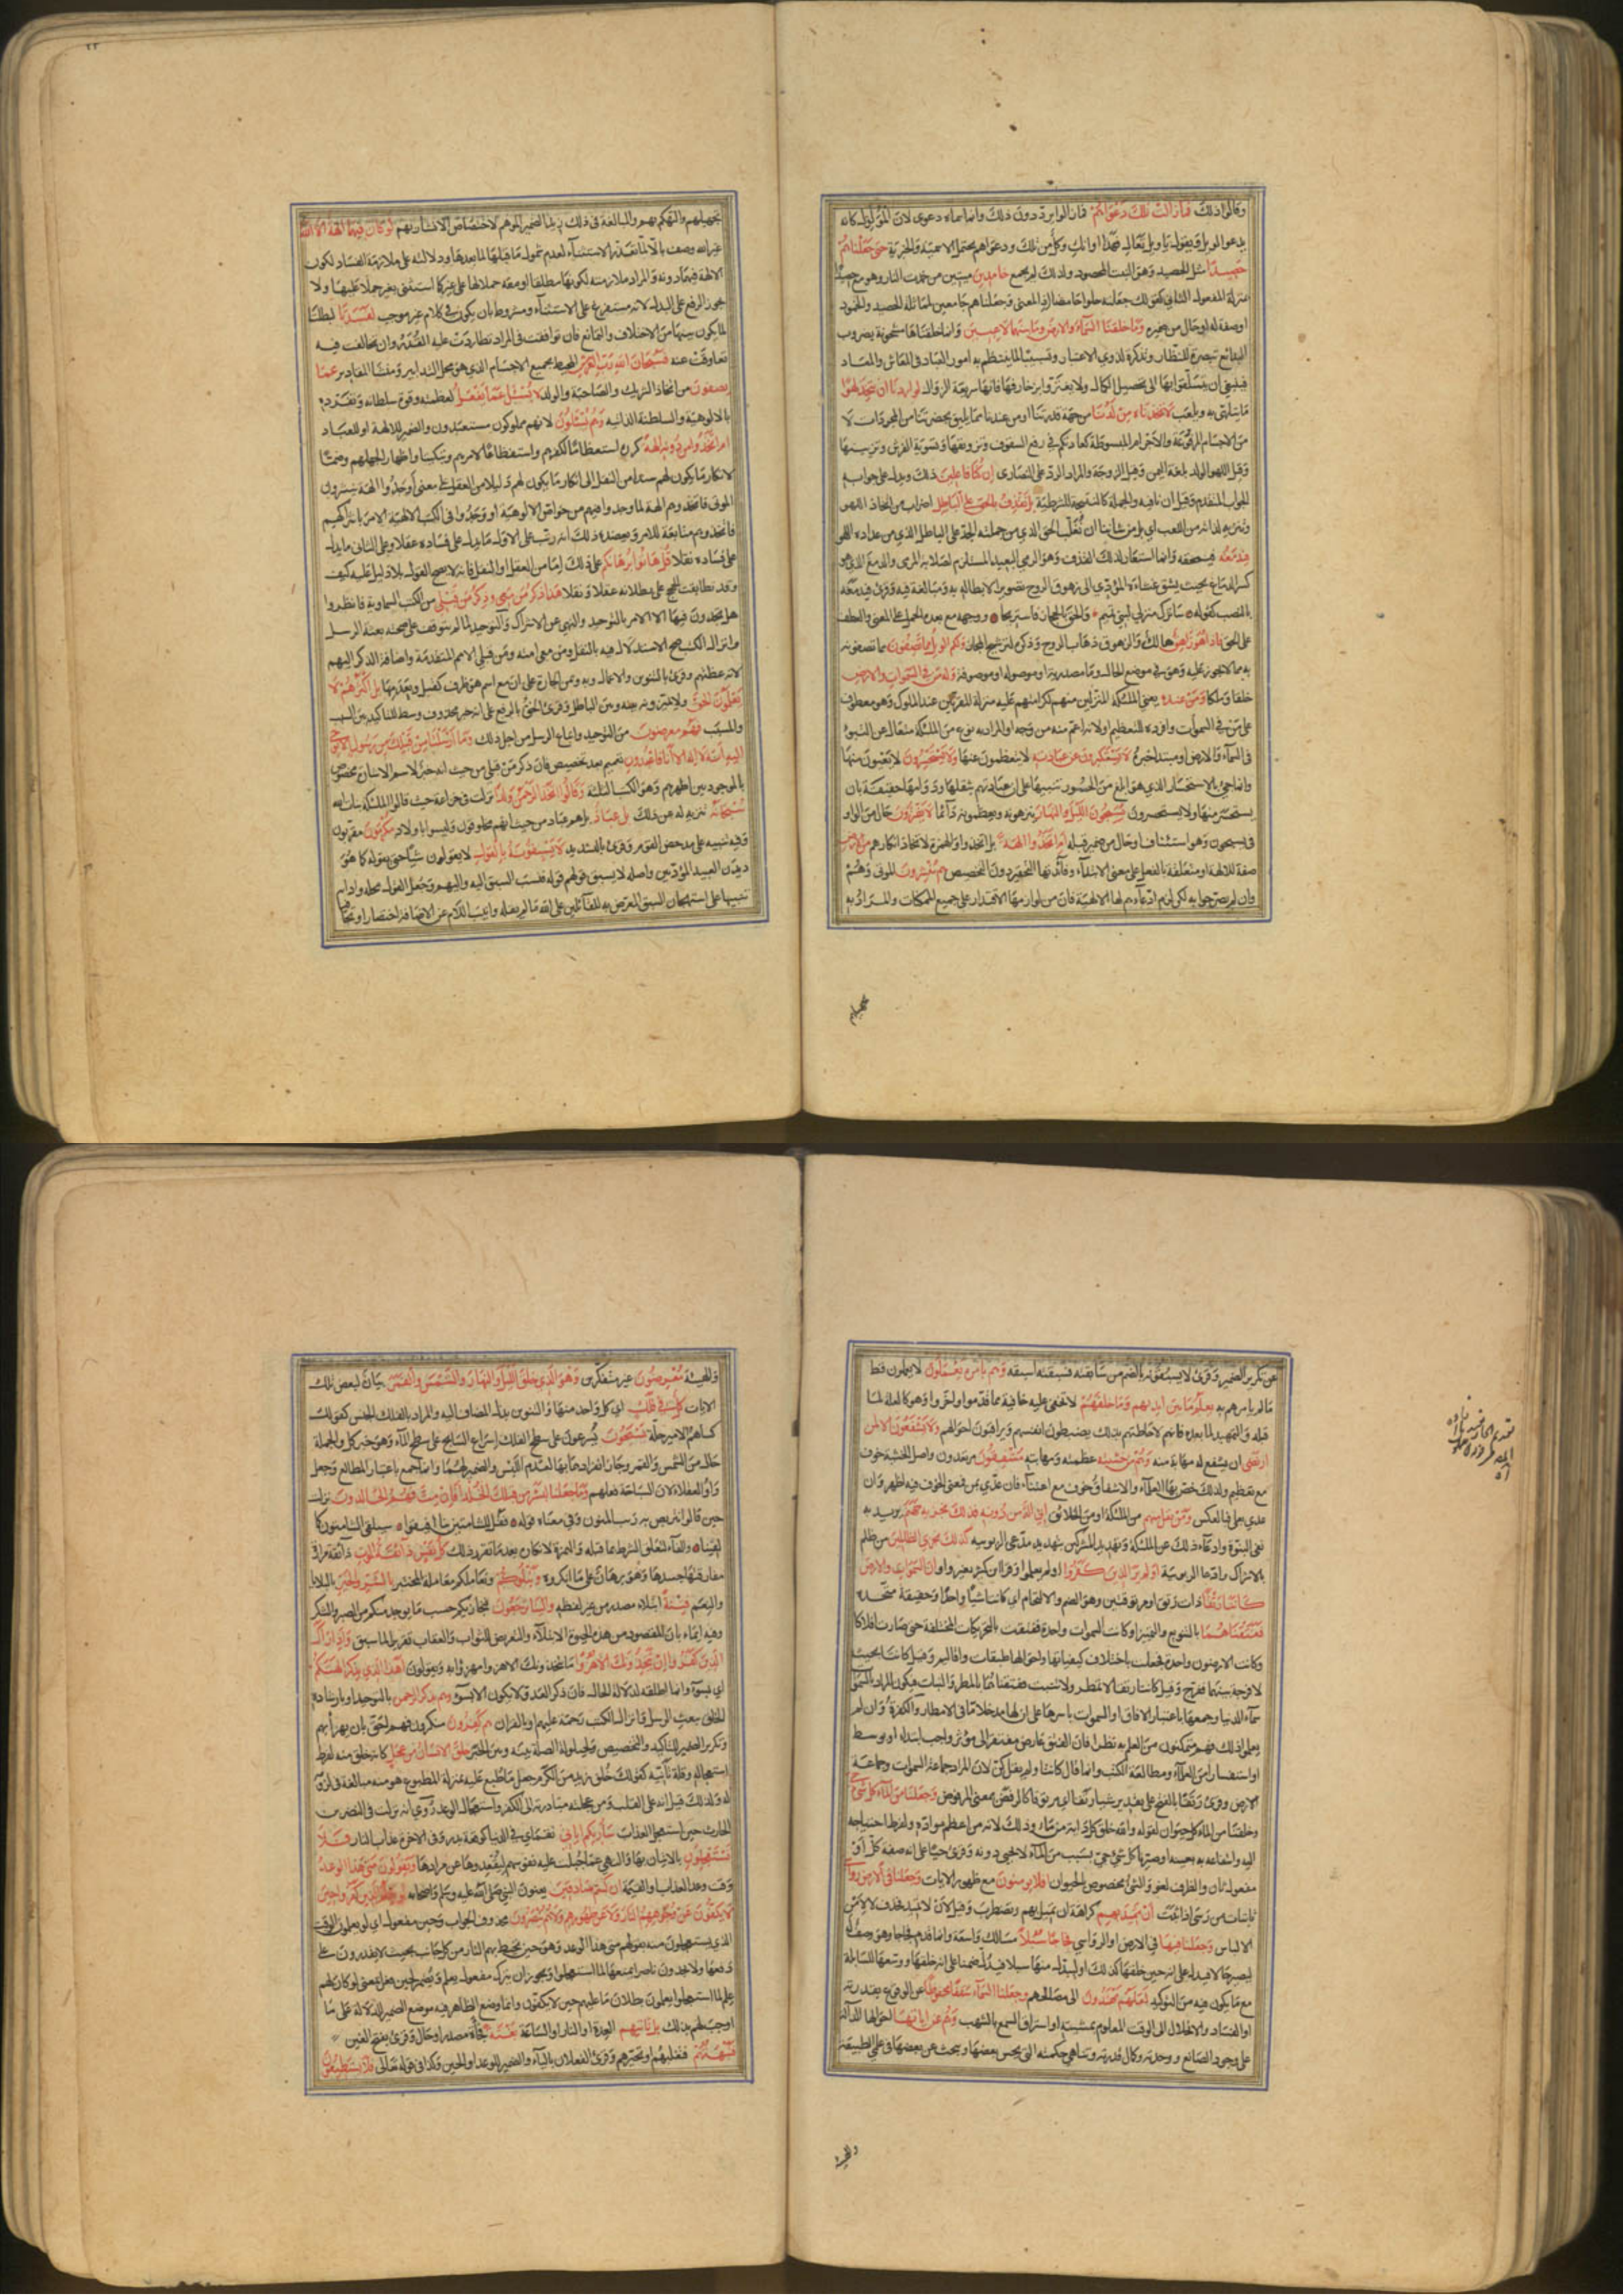 وقالوا ذلك فما زالت تلك دعواهم فما زالوا يرددون ذلك وانما سماه دعوى لان المولول كانه
يدعو الويل ويقول يا ويل تعال فهذا اوانك وكل من تلك ودعواهم يحتمل الاسمية والخبرية حتى جعلناهم
حصيدا مثل الحصيد وهو النبت المحصود ولذلك لم يجمع خامدين ميتين من خمدت النار وهو مع حصيدا
منزلة المفعول الثاني كقولك جعلته حلوا حامضا اذ المعنى وجعلناهم جامعين لمماثلة الحصيد والخمود
او صفة له او حال من ضميره وما خلقنا السماء والارض وما بينهما لاعبين وانما خلقناها مشحونة بضروب
البدائع تبصرة للنظار وتذكرة لذوي الاعتبار وتسبيبا لما ينتظم به امور العباد في المعاش والمعاد
فينبغي ان يتسلقوا بها الى تحصيل الكمال ولا يغتروا بزخارفها فانها سريعة الزوال لو اردنا ان نتخذ لهوا
ما يتلهى به ويلعب لاتخذناه من لدنا من جهة قدرتنا او من عندنا مما يليق بحضرتنا من المجردات لا
من الاجسام المرفوعة والاجرام المبسوطة كعادتكم في رفع السقوف وتزويقها وتسوية الفرش وتزيينها
وقيل اللهو الولد بلغة اليمن وقيل الزوجة والمراد الرد على النصارى ان كنا فاعلين ذلك ويدل على جوابه
الجواب المتقدم وقيل ان نافيه والجملة كالنتيجة للشرطية بل نقذف بالحق على الباطل اضراب عن اتخاذ اللهو
وتنزيه لذاته من اللعب اي بل من شاننا ان نغلب الحق الذي من جملته الجد على الباطل الذي من عداده اللهو
فيدمغه فيمحقه وانما استعار لذلك القذف وهو الرمي البعيد المستلزم لصلابة المرمى والدمغ الذي هو
كسر الدماغ بحيث يشق غشاءه المؤدي الى زهوق الروح تصويرا لابطاله به ومبالغة فيه وقرئ فيدمغه
بالنصب كقوله ساترك منزلي لبني تميم والحق بالحجاز فاستريحا ووجهه مع بعده الحمل على المعنى والعطف
على الحق فاذا هو زاهق هالك والزهوق ذهاب الروح وذكره لترشيح المجاز ولكم الويل مما تصفون مما تصفونه
به مما لا يجوز عليه وهو في موضع الحال وما مصدرية او موصولة او موصوفة وله من في السموات والارض
خلقا وملكا ومن عنده يعني الملئكة المنزلين منهم لكرامتهم عليه منزلة المقربين عند الملوك وهو معطوف
على من في السموات وافرده للتعظيم او لانه اعم منه من وجه او المراد به نوع من الملئكة متعال عن التبوئ
في السماء والارض او مبتدا خبره لا يستكبرون عن عبادته لا يتعظمون عنها ولا يستحسرون لا يتعبون منها
وانما جئ بالاستحسار الذي هو ابلغ من الحسور تنبيها على ان عبادتهم بثقلها ودوامها حقيقة بان
يستحسر منها ولا يستحسرون يسبحون الليل والنهار ينزهونه ويعظمونه دائما لا يفترون حال من الواو
في يسبحون وهو استئناف او حال من ضمير قبله ام اتخذوا الهة بل اتخذوا والهمزة لانكار اتخاذهم من الارض
صفة لالهة او متعلقة بالفعل على معنى الابتداء وفائدتها التحقير دون التخصيص هم ينشرون الموتى وهم
وان لم يصرحوا به لكن لزم ادعاءهم لها الالهية فان من لوازمها الاقتدار على جميع الممكنات والمراد به
تجهيلهم
تجهيلهم والتهكم بهم وللمبالغة في ذلك زيد الضمير الموهم لاختصاص الانشار بهم لو كان فيهما الهة الا الله
غير الله وصف بالا لما تعذر الاستثناء لعدم شمول ما قبلها لما بعدها ودلالته على ملازمة الفساد لكون
الالهة فيهما دونه والمراد ملازمته لكونها مطلقا او معه حملا لها على غير كما استثنى بغير حملا عليها ولا
يجوز الرفع على البدل لانه متفرع على الاستثناء ومشروط بان يكون في كلام غير موجب لفسدتا لبطلتا
لما يكون بينهما من الاختلاف والتمانع فان توافقت في المراد تطاردت عليه القدر وان تخالفت فيه
تعاوقت عنه فسبحان الله رب العرش المحيط بجميع الاجسام الذي هو محل التدابير ومنشا المقادير عما
يصفون من اتخاذ الشريك والصاحبة والولد لا يسئل عما يفعل لعظمته وقوة سلطانه وتفرده
بالالوهية والسلطنة الذاتيه وهم يسئلون لانهم مملوكون مستعبدون والضمير للالهة او للعباد
ام اتخذوا من دونه الهة كرره استعظاما لكفرهم واستفظاعا لامرهم وتبكيتا واظهارا لجهلهم وضما
لانكار ما يكون لهم سندا من النقل الى انكار ما يكون لهم دليلا من العقل على معنى اوجدوا الهة ينشرون
الموتى فاتخذوهم الهة لما وجدوا فيهم من خواص الالوهية او وجدوا في الكتب الالهية الامر باشراكهم
فاتخذوهم متابعة للامر ويعضده ذلك انه رتب على الاول ما يدل على فساده عقلا وعلى الثاني ما يدل
على فساده نقلا قل هاتوا برهانكم على ذلك اما من العقل او النقل فانه لا يصح القول بلا دليل عليه كيف
وقد تطابقت الحجج على بطلانه عقلا ونقلا هذا ذكر من معي وذكر من قبلي من الكتب السماوية فانظروا
هل تجدون فيها الا الامر بالتوحيد والنهي عن الاشراك والتوحيد لما لم يتوقف على صحته بعثة الرسل
وانزال الكتب صح الاستدلال فيه بالنقل ومن معي امته ومن قبلي الامم المتقدمة واضافة الذكر اليهم
لانه عظتهم وقرئ بالتنوين والاعمال وبه وبمن الجارة على ان مع اسم هو ظرف كقبل وبعد وبها بل اكثرهم لا
يعلمون الحق ولا يميزون بينه وبين الباطل وقرئ الحق بالرفع على انه خبر محذوف وسط للتاكيد بين السبب
والمسبب فهم معرضون من التوحيد واتباع الرسل من اجل ذلك وما ارسلنا من قبلك من رسول الا نوحي
اليه انه لا اله الا انا فاعبدون تعميم بعد تخصيص فان ذكر من قبلي من حيث انه خبر لاسم الاشارة مخصوص
بالموجود بين اظهرهم وهو الكتب الثلثة وقالوا اتخذ الرحمن ولدا نزلت في خزاعة حيث قالوا الملئكة بنات الله
سبحانه تنزيه له عن ذلك بل عباد بل هم عباد من حيث انهم مخلوقون وليسوا باولاد مكرمون مقربون
وفيه تنبيه على مدحض القوم وقرئ بالتشديد لا يسبقونه بالقول لا يقولون شيأ حتى يقوله كما هو
ديدن العبيد المؤدبين واصله لا يسبق قولهم قوله فنسب السبق اليه واليهم وجعل القول محله واداته
تنبيها على استهجان السبق المعرض به للقائلين على الله ما لم يقله وانيب اللام عن الاضافة اختصارا وتجافيا
عن تكرير الضمير وقرئ لا يسبقونه بالضم من سابقته فسبقته اسبقه وهم بامره يعملون لا يعملون قط
ما لم يامرهم به يعلم ما بين ايديهم وما خلفهم لا تخفى عليه خافية مما قدموا واخروا وهو كالعلة لما
قبله والتمهيد لما بعده فانهم لاحاطتهم بذلك يضبطون انفسهم ويراقبون احوالهم ولا يشفعون الا لمن
ارتضى ان يشفع له مهابة منه وهم من خشيته عظمته ومهابته مشفقون مرتعدون واصل الخشية خوف
مع تعظيم ولذلك خص بها العلماء والاشفاق خوف مع اعتناء فان عدي بمن فمعنى الخوف فيه اظهر وان
عدي بعلى فبالعكس ومن يقل منهم من الملئكة او من الخلائق اني اله من دونه فذلك نجزيه جهنم يريد به
نفي البنوة وادعاء ذلك عن الملئكة وتهديد المشركين بتهديد مدعي الربوبيه كذلك نجزي الظالمين من ظلم
بالاشراك وادعا الربوبية اولم ير الذين كفروا اولم يعلموا وقرا ابن كثير بغير واو ان السموات والارض
كانتا رتقا ذات رتق او مرتوقتين وهو الضم والالتحام اي كانتا شيئا واحدا وحقيقة متحده
ففتقناهما بالتنويع والتمييز او كانت السموات واحدة ففتقت بالتحريكات المختلفة حتى صارت افلاكا
وكانت الارضون واحدة فجعلت باختلاف كيفياتها واحوالها طبقات واقاليم وقيل كانتا بحيث
لا فرجة بينهما ففرج وقيل كانتا رتقا لا تمطر ولا تنبت ففتقناهما بالمطر والنبات فيكون المراد بالسموات
سماء الدنيا وجمعها باعتبار الافاق او السموات باسرها على ان لها مدخلا ما في الامطار والكفرة وان لم
يعلموا ذلك فهم متمكنون من العلم به نظرا فان الفتق عارض مفتقر الى مؤثر واجب ابتداء او بوسط
او استفسارا من العلماء ومطالعة الكتب وانما قال كانتا ولم يقل كن لان المراد جماعة السموات وجماعة
الارض وقرئ رتقا بالفتح على تقدير شيا رتقا اي مرتوقا كالرفض بمعنى المرفوض وجعلنا من الماء كل شئ حي
وخلقنا من الماء كل حيوان لقوله والله خلق كل دابة من ماء وذلك لانه من اعظم موادم ولفرط احتياجه
اليه وانتفاعه به بعينه او صيرنا كل شئ حي بسبب من الماء لا يحيى دونه وقرئ حيا على انه صفة كل او
مفعول ثان والظرف لغو والشئ مخصوص بالحيوان افلا يومنون مع ظهور الايات وجعلنا في الارض رواسي
ثابتات من رسى اذا ثبت ان تميد بهم كراهة ان تميل بهم وتضطرب وقيل لان لا تميد فحذف لا لامن
الالباس وجعلنا فيها في الارض او الرواسي فجاجا سبلا مسالك واسعة وانما قدم فجاجا وهو وصف له
ليصير حالا فيدل على انه حين خلقها كذلك او ليبدل منها سبلا فيدل ضمنا على انه خلقها ووسعها للسابلة
مع ما يكون فيه من التوكيد لعلهم يهتدون الى مصالحهم وجعلنا السماء سقفا محفوظا عن الوقوع بقدرته
او الفساد والانحلال الى الوقت المعلوم بمشيته او استراق السمع بالشهب وهم عن اياتها احوالها الدالة
على وجود الصانع ووحدته وكمال قدرته وتناهي حكمته التي يحس ببعضها ويبحث عن بعضها في علمي الطبيعة
والهيئة
والهيئة معرضون غير متفكرين وهو الذي خلق الليل والنهار والشمس والقمر بيان لبعض تلك
الايات كل في فلك اي كل واحد منها والتنوين بدل المضاف اليه والمراد بالفلك الجنس كقولك
كساهم الامير حلة يسبحون يسرعون على سطح الفلك اسراع السابح على سطح الماء وهو خبر كل والجملة
حال من الشمس والقمر وجاز انفرادهما بها لعدم اللبس والضمير لهما وانما جمع باعتبار المطالع وجعل
واو العقلاء لان السباحة فعلهم وما جعلنا لبشر من قبلك الخلد افان مت فهم الخالدون نزلت
حين قالوا نتربص به ريب المنون وفي معناه قوله فقل للشامتين بنا افيقوا سيلقى الشامتون كما
لقينا والفاء لتعلق الشرط بما قبله والهمزة لانكاره بعد ما تقرر ذلك كل نفس ذائقة الموت ذائقة مرارة
مفارقتها جسدها وهو برهان على ما انكروه ونبلوكم ونعاملكم معاملة المختبر بالشر والخير بالبلايا
والنعم فتنة ابتلاء مصدر من غير لفظه والينا ترجعون فنجازيكم حسب ما يوجد منكم من الصبر والشكر
وفيه ايماء بان المقصود من هذه الحيوة الابتلاء والتعريض للثواب والعقاب تقريرا لما سبق واذا راك
الذين كفروا ان يتخذونك الا هزوا ما يتخذونك الا هزوا مهزوا به ويقولون اهذا الذي يذكر الهتكم
اي بسوء وانما اطلقه لدلالة الحال فان ذكر العدو لا يكون الا بسوء وهم بذكر الرحمن بالتوحيد او بارشاده
الخلق ببعث الرسل وانزال الكتب رحمة عليهم او بالقران هم كافرون منكرون فهم احق بان يهزأ بهم
وتكرير الضمير للتاكيد والتخصيص ولحيلولة الصلة بينه وبين الخبر خلق الانسان من عجل كانه خلق منه لفرط
استعجاله وقلة تأنيه كقولك خلق زيد من الكرم جعل ما طبع عليه بمنزلة المطبوع هو منه مبالغة في لزومه
له ولذلك قيل انه على القلب ومن عجلته مبادرته الى الكفر واستعجال الوعد روي انه نزلت في النضر بن
الحارث حين استعجل العذاب ساريكم اياتي نقماتي في الدنيا كوقعة بدر وفي الاخرة عذاب النار فلا
تستعجلون بالاتيان بها والنهي عما جبلت عليه نفوسهم ليقعدوها عن مرادها ويقولون متى هذا الوعد
وقت وعد العذاب او القيمة ان كنتم صادقين يعنون النبي صلى الله عليه وسلم واصحابه لو يعلم الذين كفروا حين
لا يكفون عن وجوههم النار ولا عن ظهورهم ولا هم ينصرون محذوف الجواب وحين مفعول اي لو يعلمون الوقت
الذي يستعجلون منه بقولهم متى هذا الوعد وهو حين تحيط بهم النار من كل جانب بحيث لا يقدرون على
دفعها ولا يجدون ناصرا يمنعها لما استعجلوا ويجوز ان يترك مفعول يعلم ويضمر لحين فعل بمعنى لو كان لهم
علم لما استعجلوا يعلمون بطلان ما عليهم حين لا يكفون وانما وضع الظاهر فيه موضع الضمير للدلالة على ما
اوجب لهم ذلك بل تاتيهم العدة او النار او الساعة بغتة فجأة مصدر او حال وقرئ بفتح الغين
فتبهتهم فتغلبهم او تحيرهم وقرئ الفعلان بالياء والضمير للوعد او الحين وكذا في قوله تعالى فلا يستطيعون